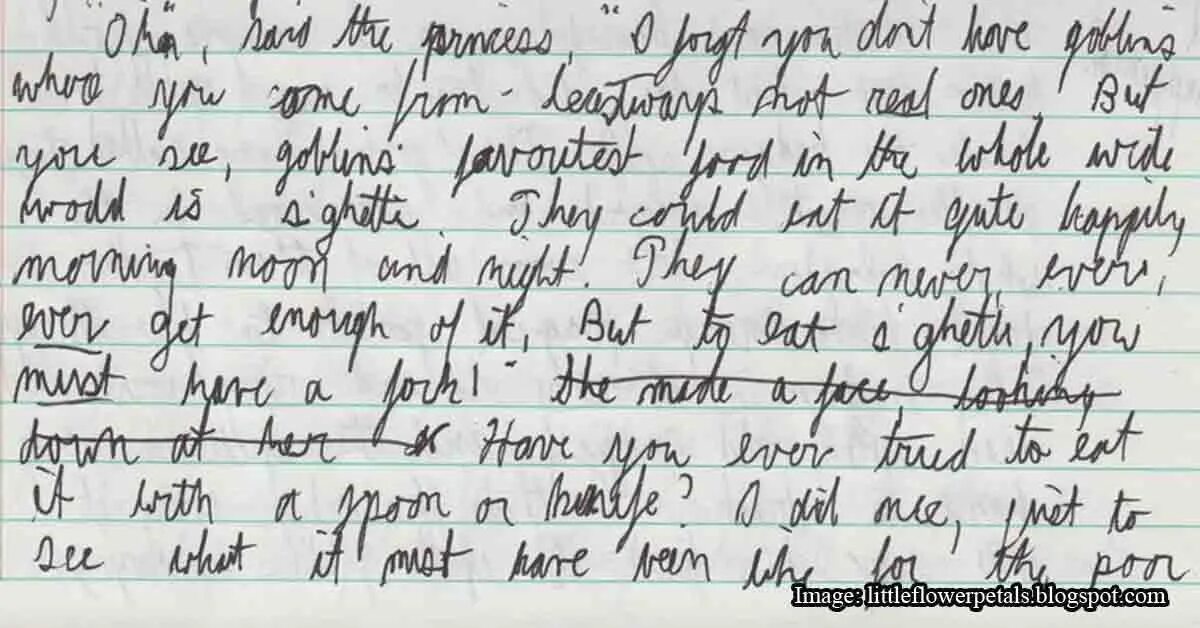 "Oh", said the princess, "I forgt you don't have goblins
where you come from - leastways not real ones. But
you see, goblins' favoutest food in the whole wide
world is s'ghetti. They could eat it quite happily
morning noon and night. They can never, ever,
ever get enough of it. But to eat s'ghetti, you
must have a fork!" She made a face, looking
down at her or Have you ever tried to eat
it with a spoon or knife? I did once, just to
see what it must have been like for the poor
Image: littleflowerpetals.blogspot.com